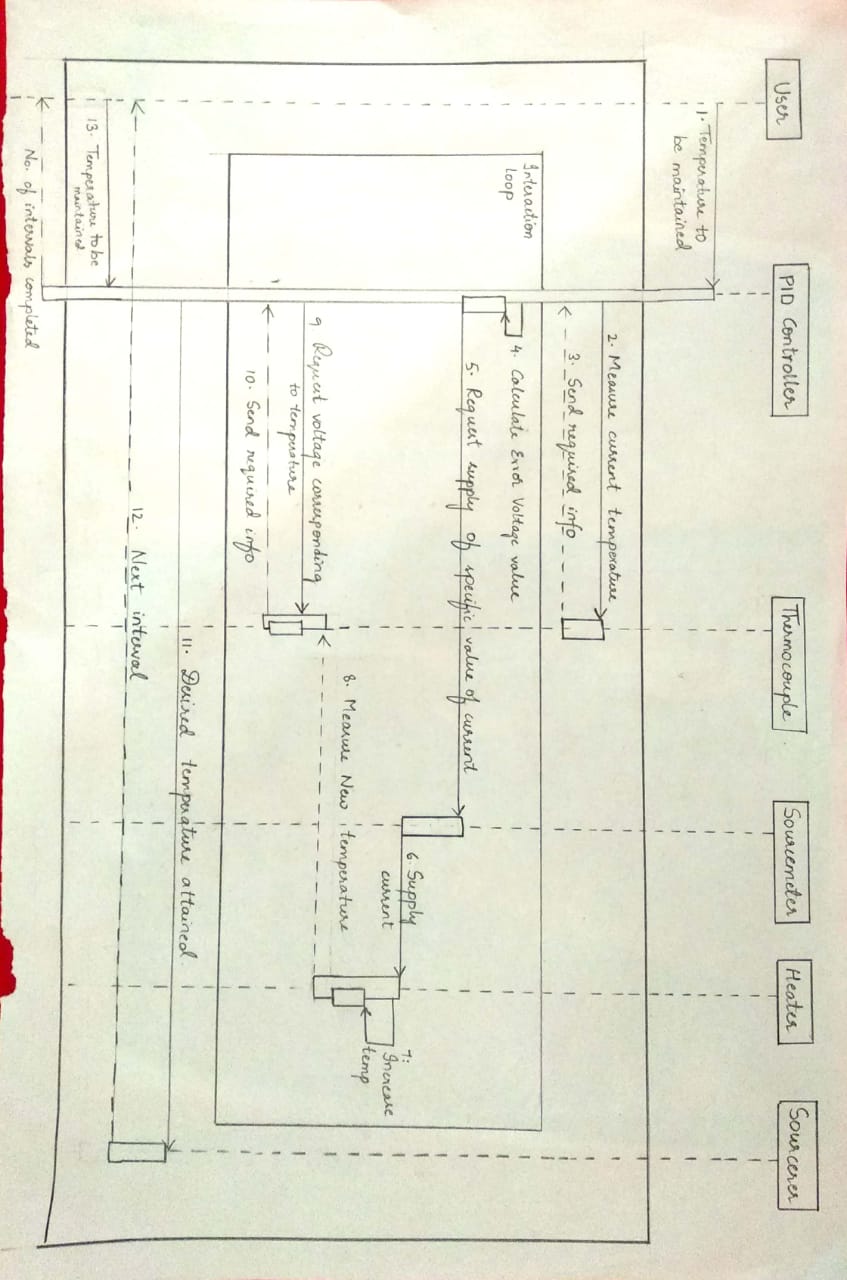 User
PID Controller
Thermocouple
Sourcemeter
Heater
Sourcerer
1. Temperature to
be maintained
2. Measure current temperature
3. Send required info
Interaction
loop
4. Calculate Error Voltage value
5. Request supply of specific value of current
6. Supply
current
7:
Increase
temp
8. Measure New temperature
9. Request voltage corresponding
to temperature
10. Send required info
11. Desired temperature attained.
12. Next interval
13. Temperature to be
maintained
No. of intervals completed